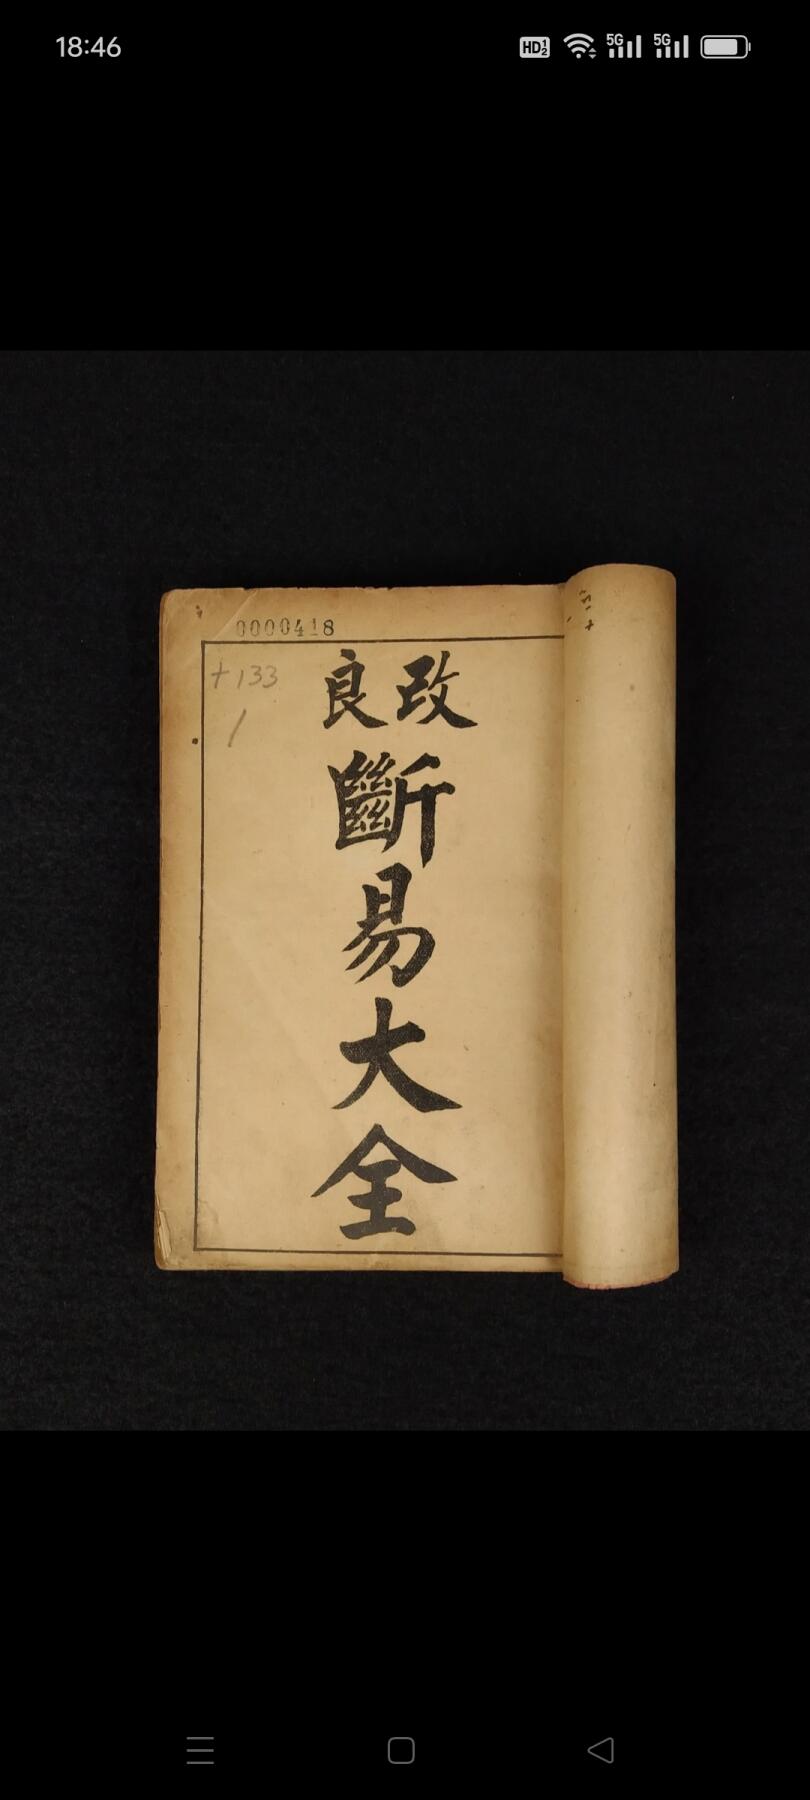 18:46
HD 1 2
5G 5G
0000418
+133
1
改良
斷易大全